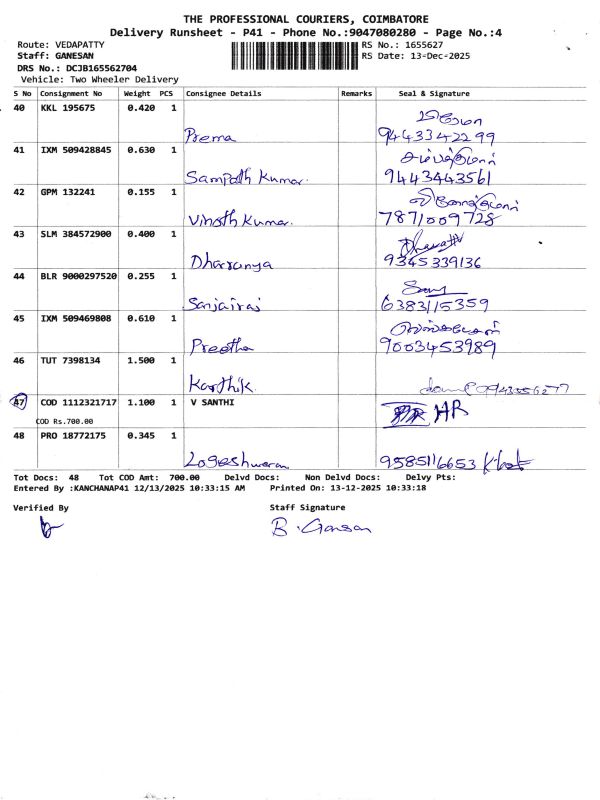 THE PROFESSIONAL COURIERS, COIMBATORE
Delivery Runsheet - P41 - Phone No.:9047080280 - Page No.:4
Route: VEDAPATTY RS No.: 1655627
Staff: GANESAN RS Date: 13-Dec-2025
DRS No.: DCJB165562704
Vehicle: Two Wheeler Delivery
S No Consignment No Weight PCS Consignee Details Remarks Seal & Signature
40 KKL 195675 0.420 1
Prema 9443342299
41 IXM 509428845 0.630 1
Sampath Kumar. 9443443561
42 GPM 132241 0.155 1
Vinoth Kumar. 7871009728
43 SLM 384572900 0.400 1
Dharanya 9345339136
44 BLR 9000297520 0.255 1
Sanjairaj 6383115359
45 IXM 509469808 0.610 1
Preetha 9003453989
46 TUT 7398134 1.500 1
Karthik.
47 COD 1112321717 1.100 1 V SANTHI
COD Rs.700.00
48 PRO 18772175 0.345 1
Logeshwaran 9585116653
Tot Docs: 48 Tot COD Amt: 700.00 Delvd Docs: Non Delvd Docs: Delvy Pts:
Entered By :KANCHANAP41 12/13/2025 10:33:15 AM Printed On: 13-12-2025 10:33:18
Verified By Staff Signature
B. Gansan